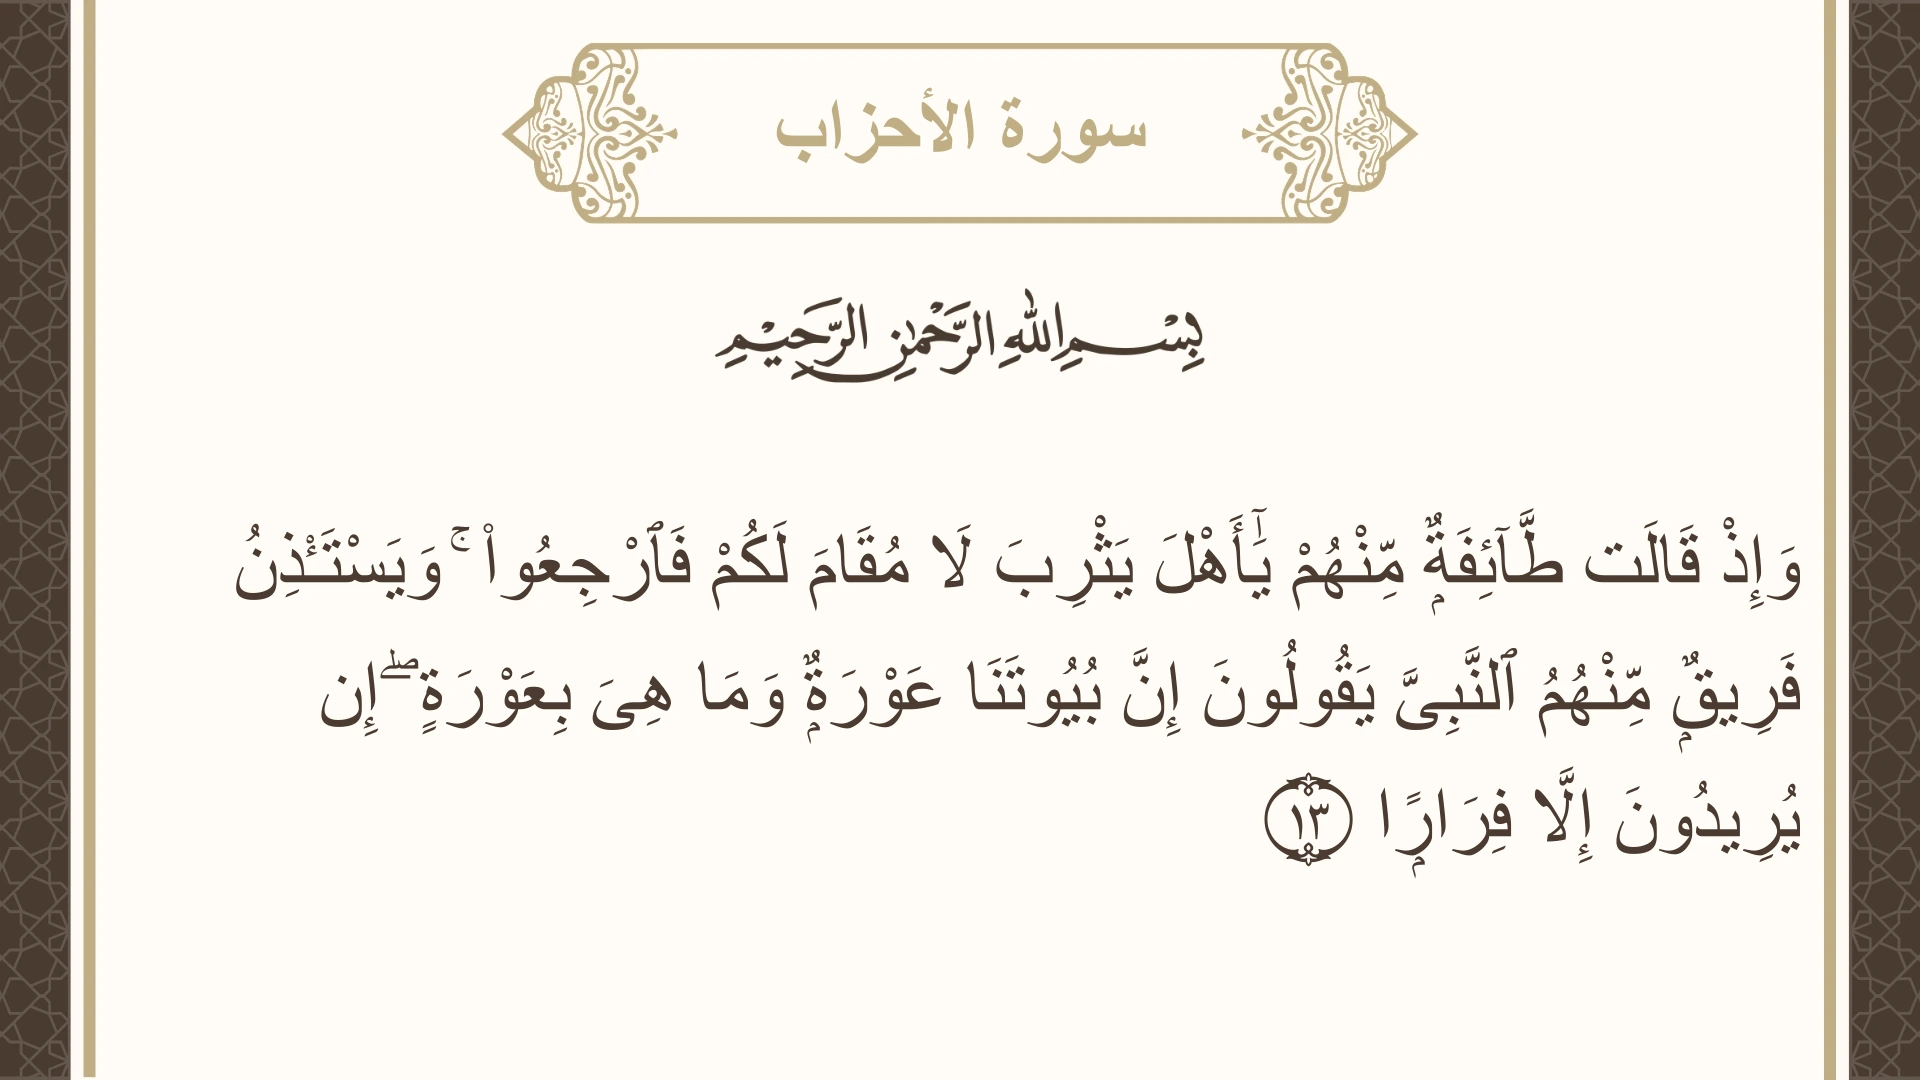 سورة الأحزاب
بِسْمِ اللهِ الرَّحْمٰنِ الرَّحِيْمِ
وَإِذْ قَالَت طَّآئِفَةٌۭ مِّنْهُمْ يَٰٓأَهْلَ يَثْرِبَ لَا مُقَامَ لَكُمْ فَٱرْجِعُوا۟ ۚ وَيَسْتَـْٔذِنُ
فَرِيقٌۭ مِّنْهُمُ ٱلنَّبِىَّ يَقُولُونَ إِنَّ بُيُوتَنَا عَوْرَةٌۭ وَمَا هِىَ بِعَوْرَةٍ ۖ إِن
يُرِيدُونَ إِلَّا فِرَارًۭا ١٣